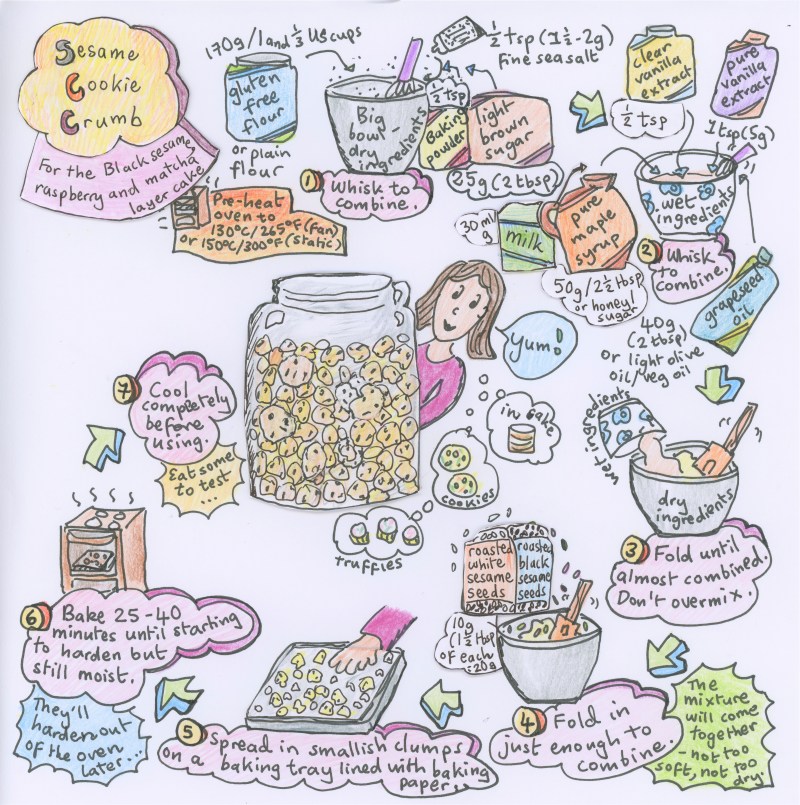 Sesame
Cookie
Crumb
For the Black sesame,
raspberry and matcha
layer cake
170g/1 and 1/3 US cups
gluten
free
flour
or plain
flour
Pre-heat
oven to
130°C/265°F (Fan)
or 150°C/300°F (static)
Big
bowl -
dry
ingredients
1/2 tsp (1 1/2 - 2g)
Fine sea salt
1/2 tsp
Baking
powder
light
brown
sugar
25g (2 tbsp)
1 Whisk to
combine.
clear
vanilla
extract
pure
vanilla
extract
1/2 tsp
1 tsp (5g)
wet
ingredients
30ml/
g
milk
pure
maple
syrup
50g/2 1/2 tbsp
or honey/
sugar
2 Whisk
to
combine.
grapeseed
oil
40g
(2 tbsp)
or light olive
oil/veg oil
Yum!
in cake
cookies
truffles
wet ingredients
dry
ingredients
3 Fold until
almost combined.
Don't overmix.
The
mixture
will come
together
- not too
soft, not too
dry.
roasted
white
sesame
seeds
roasted
black
sesame
seeds
10g
(1 1/2 tbsp
of each
=20g
4 Fold in
just enough to
combine.
5 Spread in smallish clumps
on a baking tray lined with baking
paper.
6 Bake 25-40
minutes until starting
to harden but
still moist.
They'll
harden out
of the oven
later...
7 Cool
completely
before
using.
Eat some
to test
...